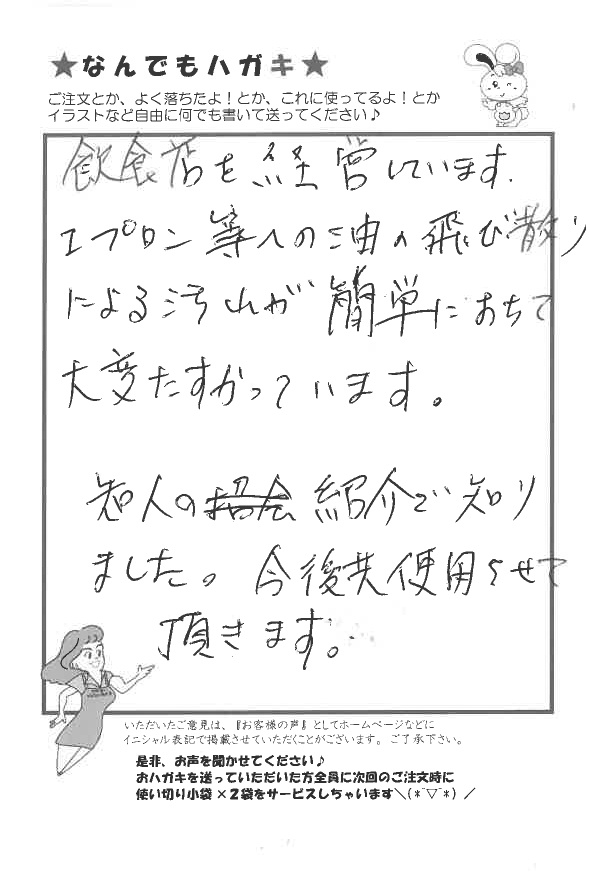 ★なんでもハガキ★
ご注文とか、よく落ちたよ！とか、これに使ってるよ！とか
イラストなど自由に何でも書いて送ってください♪
飲食店を経営しています.
エプロン等への油の飛び散り
による汚れが簡単におちて
大変たすかっています。
知人の招会紹介で知り
ました。今後共使用させて
頂きます。
いただいたご意見は、『お客様の声』としてホームページなどに
イニシャル表記で掲載させていただくことがございます。ご了承下さい。
是非、お声を聞かせてください♪
おハガキを送っていただいた方全員に次回のご注文時に
使い切り小袋×2袋をサービスしちゃいます＼(*´▽`*)／